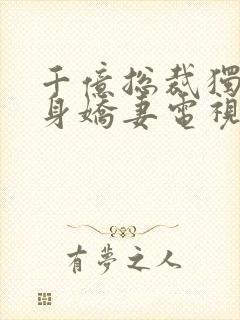 千億總裁獨
身嬌妻電視
有夢之人